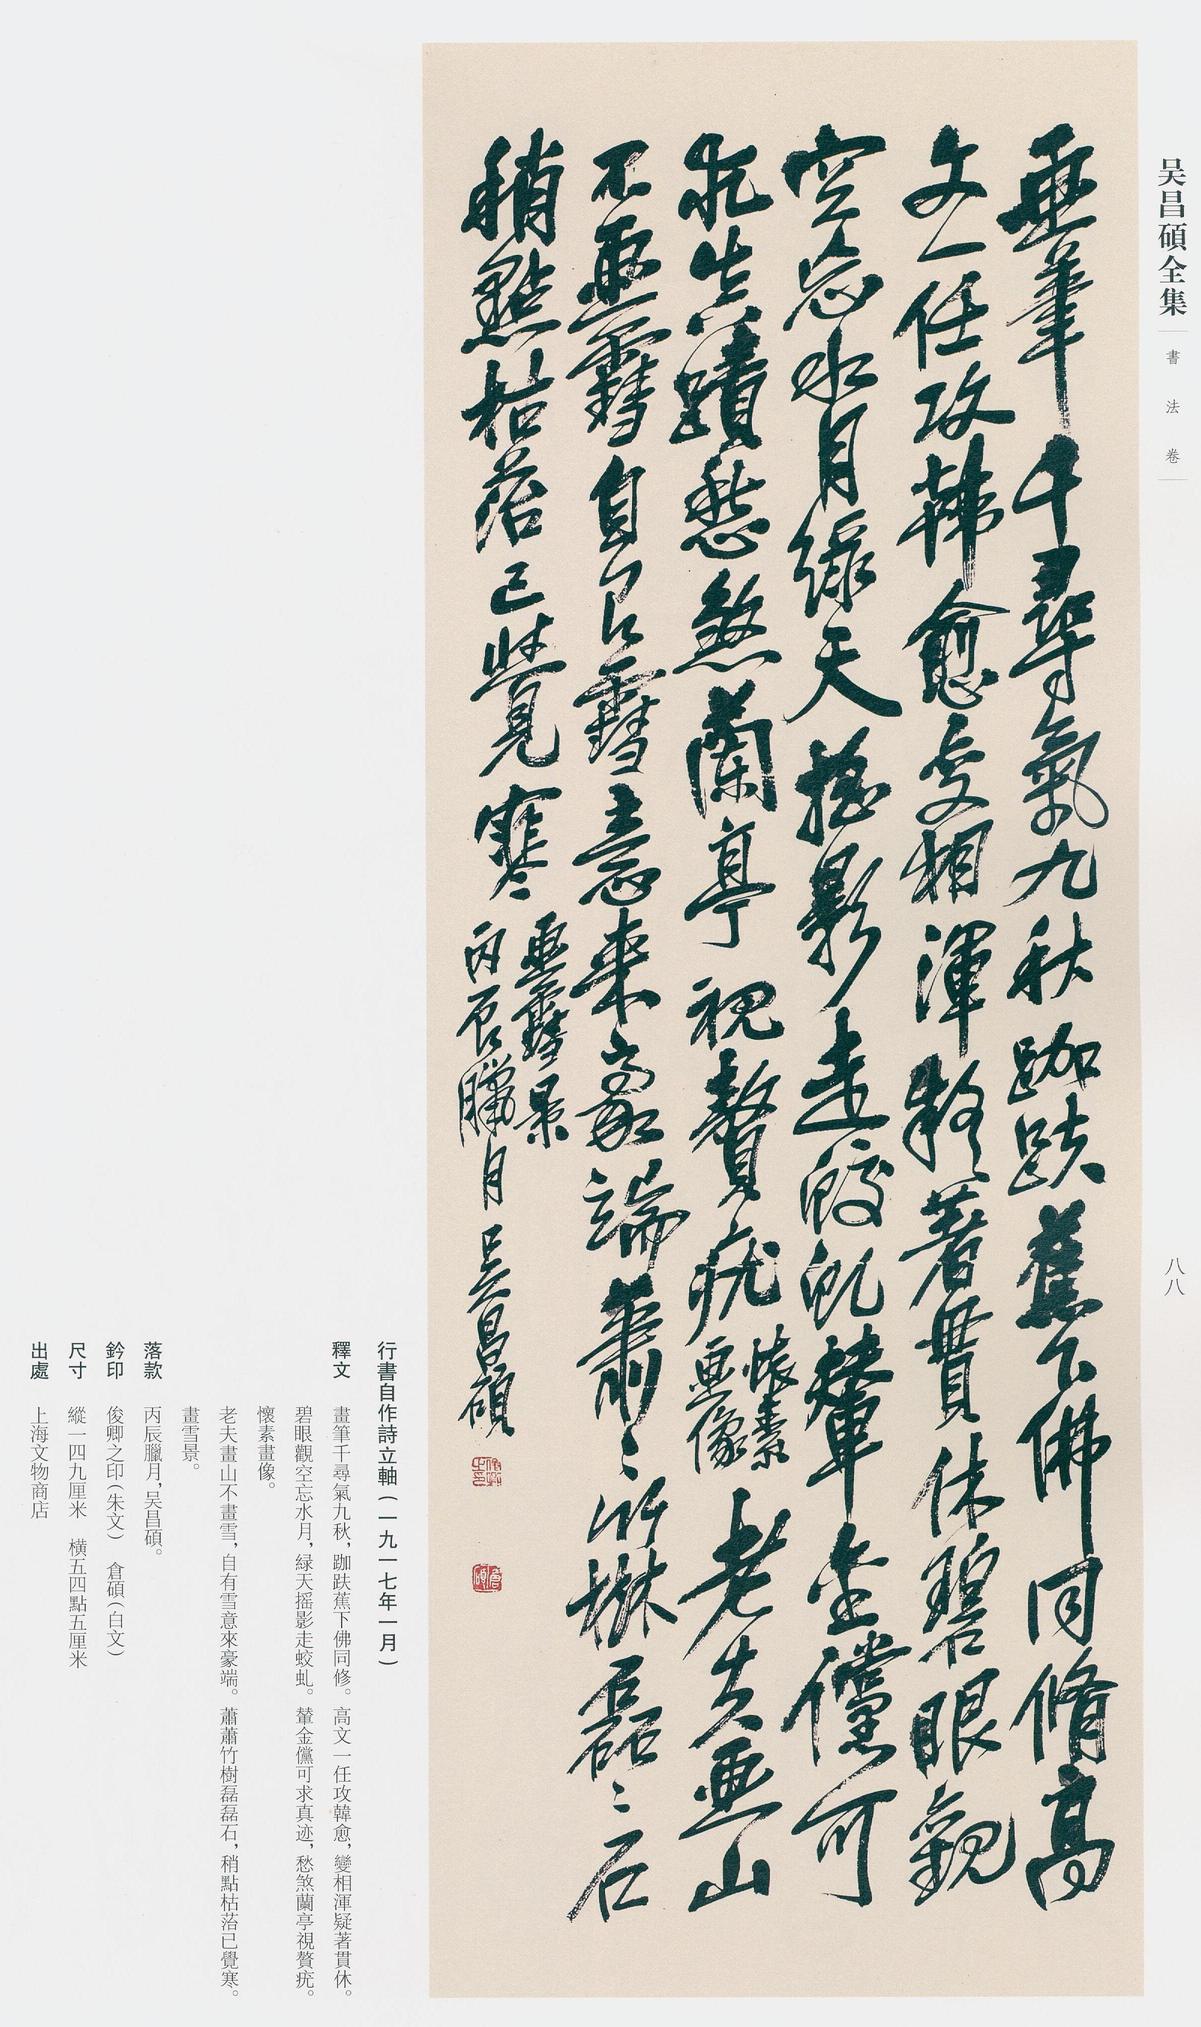 吴昌碩全集
書法卷
八八
畫筆千尋氣九秋跏趺蕉下佛同脩高
文一任攻韩愈变相渾疑著貫休碧眼觀
空忘水月緑天摇影走蛟虬輦金儻可
求真蹟愁煞蘭亭視贅疣
懷素
畫像
老夫畫山
不畫雪自有雪意來豪端蕭〻竹樹磊〻石
稍點枯落已覺寒
畫雪景
丙辰臘月吴昌碩
行書自作詩立軸(一九一七年一月)
釋文 畫筆千尋氣九秋，跏趺蕉下佛同修。高文一任攻韓愈，變相渾疑著貫休。
碧眼觀空忘水月，緑天摇影走蛟虬。輦金儻可求真迹，愁煞蘭亭視贅疣。
懷素畫像。
老夫畫山不畫雪，自有雪意來豪端。蕭蕭竹樹磊磊石，稍點枯萿已覺寒。
畫雪景。
落款 丙辰臘月，吴昌碩。
鈐印 俊卿之印(朱文) 倉碩(白文)
尺寸 縱一四九厘米 横五四點五厘米
出處 上海文物商店